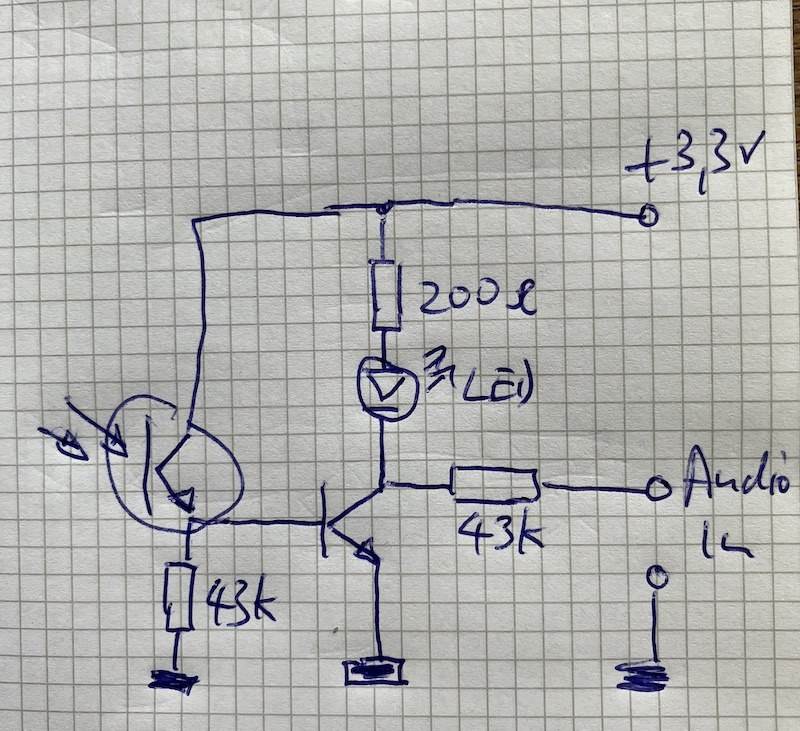 +3,3V
200Ω
LED
43k
43k
Audio
In